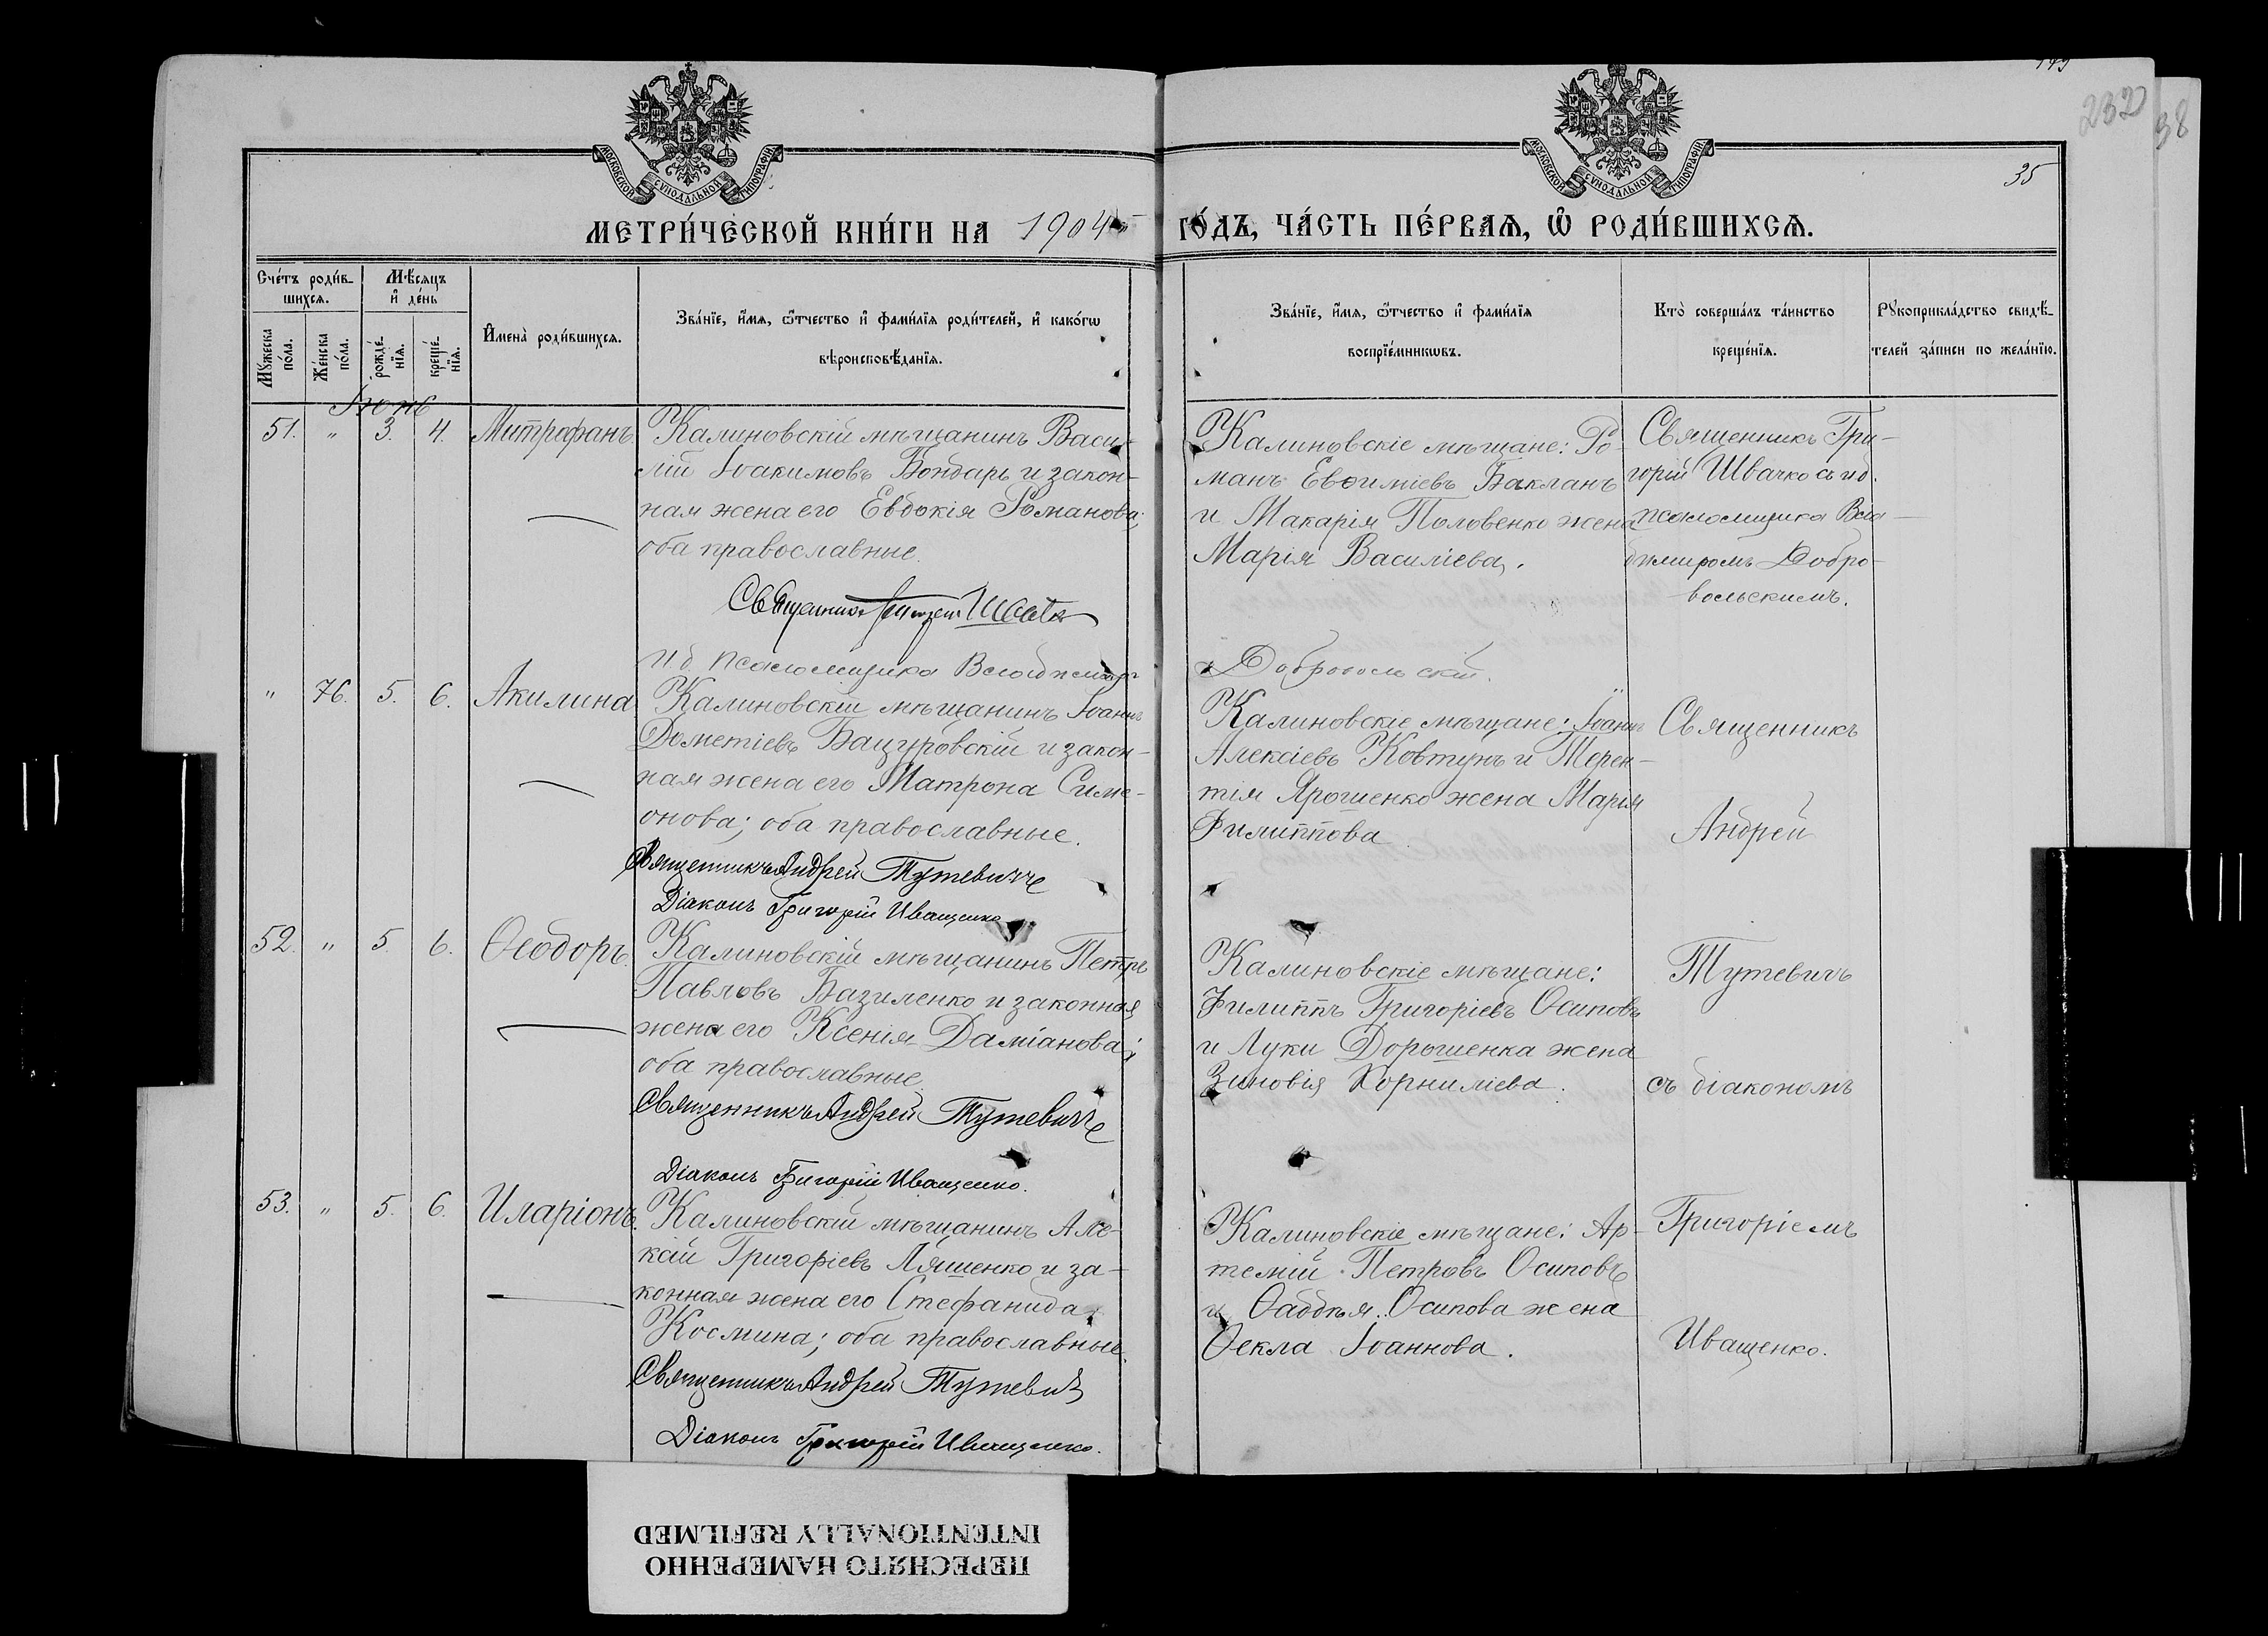 МОСКОВСКОЙ СѴНОДАЛЬНОЙ ТИПОГРАФІИ
МОСКОВСКОЙ СѴНОДАЛЬНОЙ ТИПОГРАФІИ
232
38
35
МЕТРИ́ЧЕСКОЙ КНИ́ГИ НА 1904 ГО́ДЪ, ЧА́СТЬ ПЕ́РВАѦ, Ѡ҆ РОДИ́ВШИХСѦ.
Сче́тъ роди́в-
шихсѧ.
Мѣ́сѧцъ
и҆ де́нь
Мꙋ́жеска по́ла.
Же́нска по́ла.
рожде́-
нїѧ.
креще́-
нїѧ.
И҆мена̀ роди́вшихсѧ.
Зва́нїе, и҆́мѧ, ѻ҆́тчество и҆ фамѝлїѧ роди́телей, и҆ како́гѡ
вѣроисповѣ́данїѧ.
Зва́нїе, и҆́мѧ, ѻ҆́тчество и҆ фамѝлїѧ
воспрїе́мникѡвъ.
Кто̀ соверша́лъ та́инство
креще́нїѧ.
Рꙋкоприкла́дство свидѣ́-
телей за́писи по жела́нїю.
Іюнь
51. " 3. 4. Митрофанъ.
Калиновскій мѣщанинъ Васи-
лій Іоакимовъ Бондарь и закон-
ная жена его Евдокія Романова;
оба православные.
Священникъ Григорій Швачко
И д. псаломщика Владимиръ Добровольскій.
Калиновскіе мѣщане: Ро-
манъ Евѳиміевъ Бакланъ
и Макарія Половенко жена
Марія Василіева.
Священникъ Гри-
горій Швачко съ и д.
псаломщика Вла-
димиромъ Добро-
вольскимъ.
" 76. 5. 6. Акилина
Калиновскій мѣщанинъ Іоаннъ
Дометіевъ Бацуровскій и закон-
ная жена его Матрона Симе-
онова; оба православные.
Священникъ Андрей Тутевичъ
Діаконъ Григорій Иващенко
Калиновскіе мѣщане: Іоаннъ
Алексіевъ Ковтунъ и Терен-
тія Ярошенко жена Марія
Филиппова
Священникъ
Андрей
52. " 5. 6. Ѳеодоръ.
Калиновскій мѣщанинъ Петръ
Павловъ Базиленко и законная
жена его Ксенія Даміанова;
оба православные.
Священникъ Андрей Тутевичъ
Діаконъ Григорій Иващенко.
Калиновскіе мѣщане:
Филиппъ Григоріевъ Осиповъ
и Луки Дорошенка жена
Зиновія Корниліева.
Тутевичъ
съ діакономъ
53. " 5. 6. Иларіонъ.
Калиновскій мѣщанинъ Але-
ксій Григоріевъ Ляшенко и за-
конная жена его Стефанида
Космина; оба православные.
Священникъ Андрей Тутевичъ
Діаконъ Григорій Иващенко.
Калиновскіе мѣщане: Ар-
темій Петровъ Осиповъ
и Ѳаддѣя Осипова жена
Ѳекла Іоаннова.
Григоріемъ
Иващенко.
ПЕРЕСНЯТО НАМЕРЕННО
INTENTIONALLY REFILMED